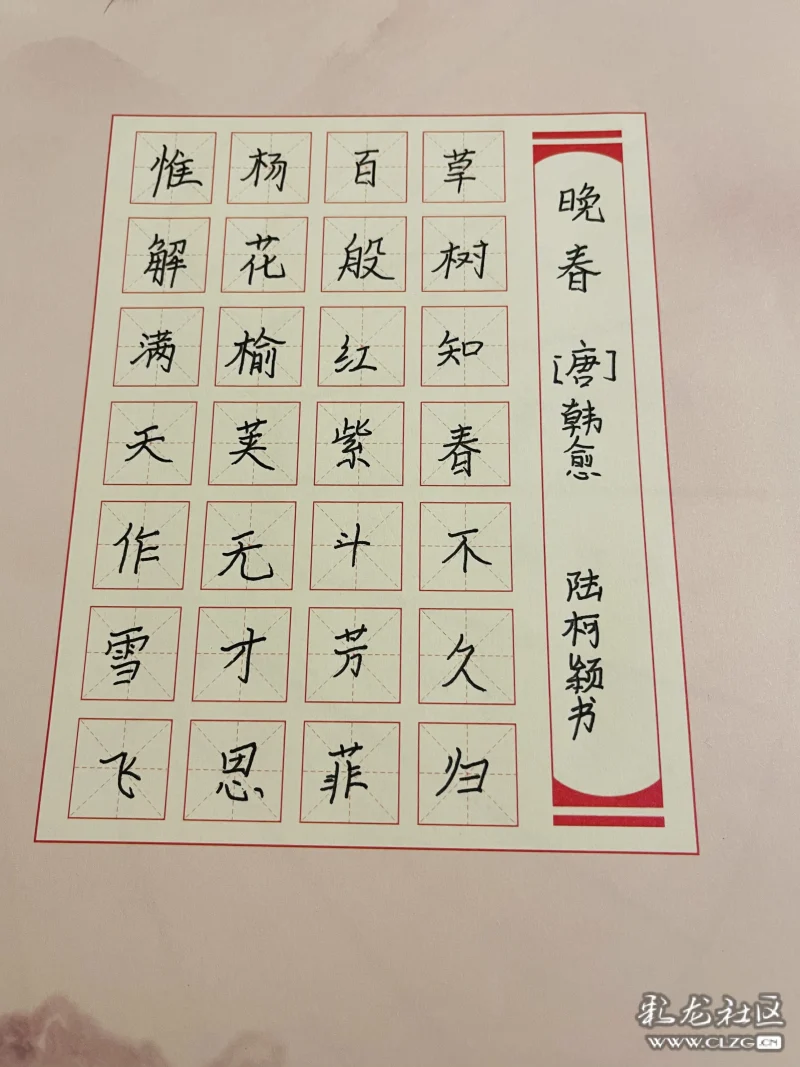 晚春 [唐]韩愈 陆柯颖书
草树知春不久归
百般红紫斗芳菲
杨花榆荚无才思
惟解满天作雪飞
彩龙社区
WWW.CLZG.CN